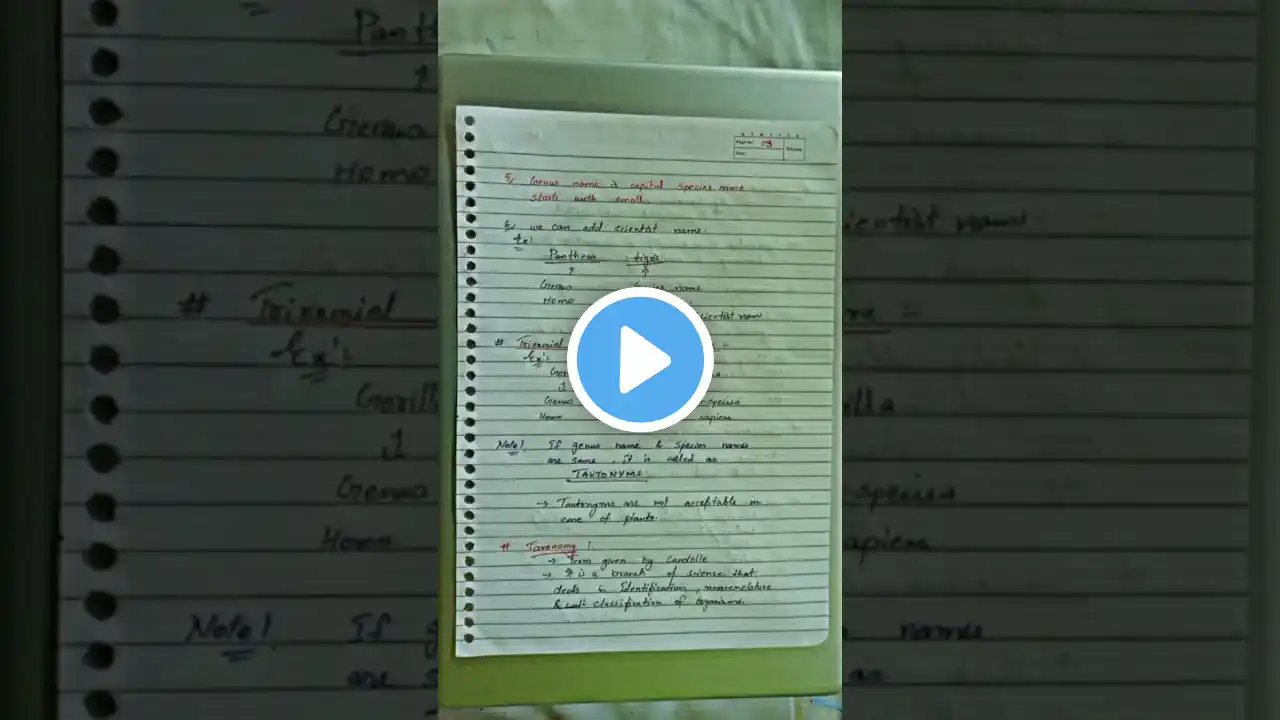 5) Genus name is capital species name
starts with small.
6) we can add scientist name.
Ex!
Panthera tigris
↑ ↑
Genus Species name
Homo
scientist nam
# Trinomial
Ex's
Gorilla
Genus species
Homo sapiens
Note! If genus name & species names
are same, it is called as
TAUTONYMS
→ Tautonyms are not acceptable in
case of plants.
# Taxonomy !
→ Term given by Candolle
→ It is a branch of science that
deals Identification, nomenclature
& classification of organisms.